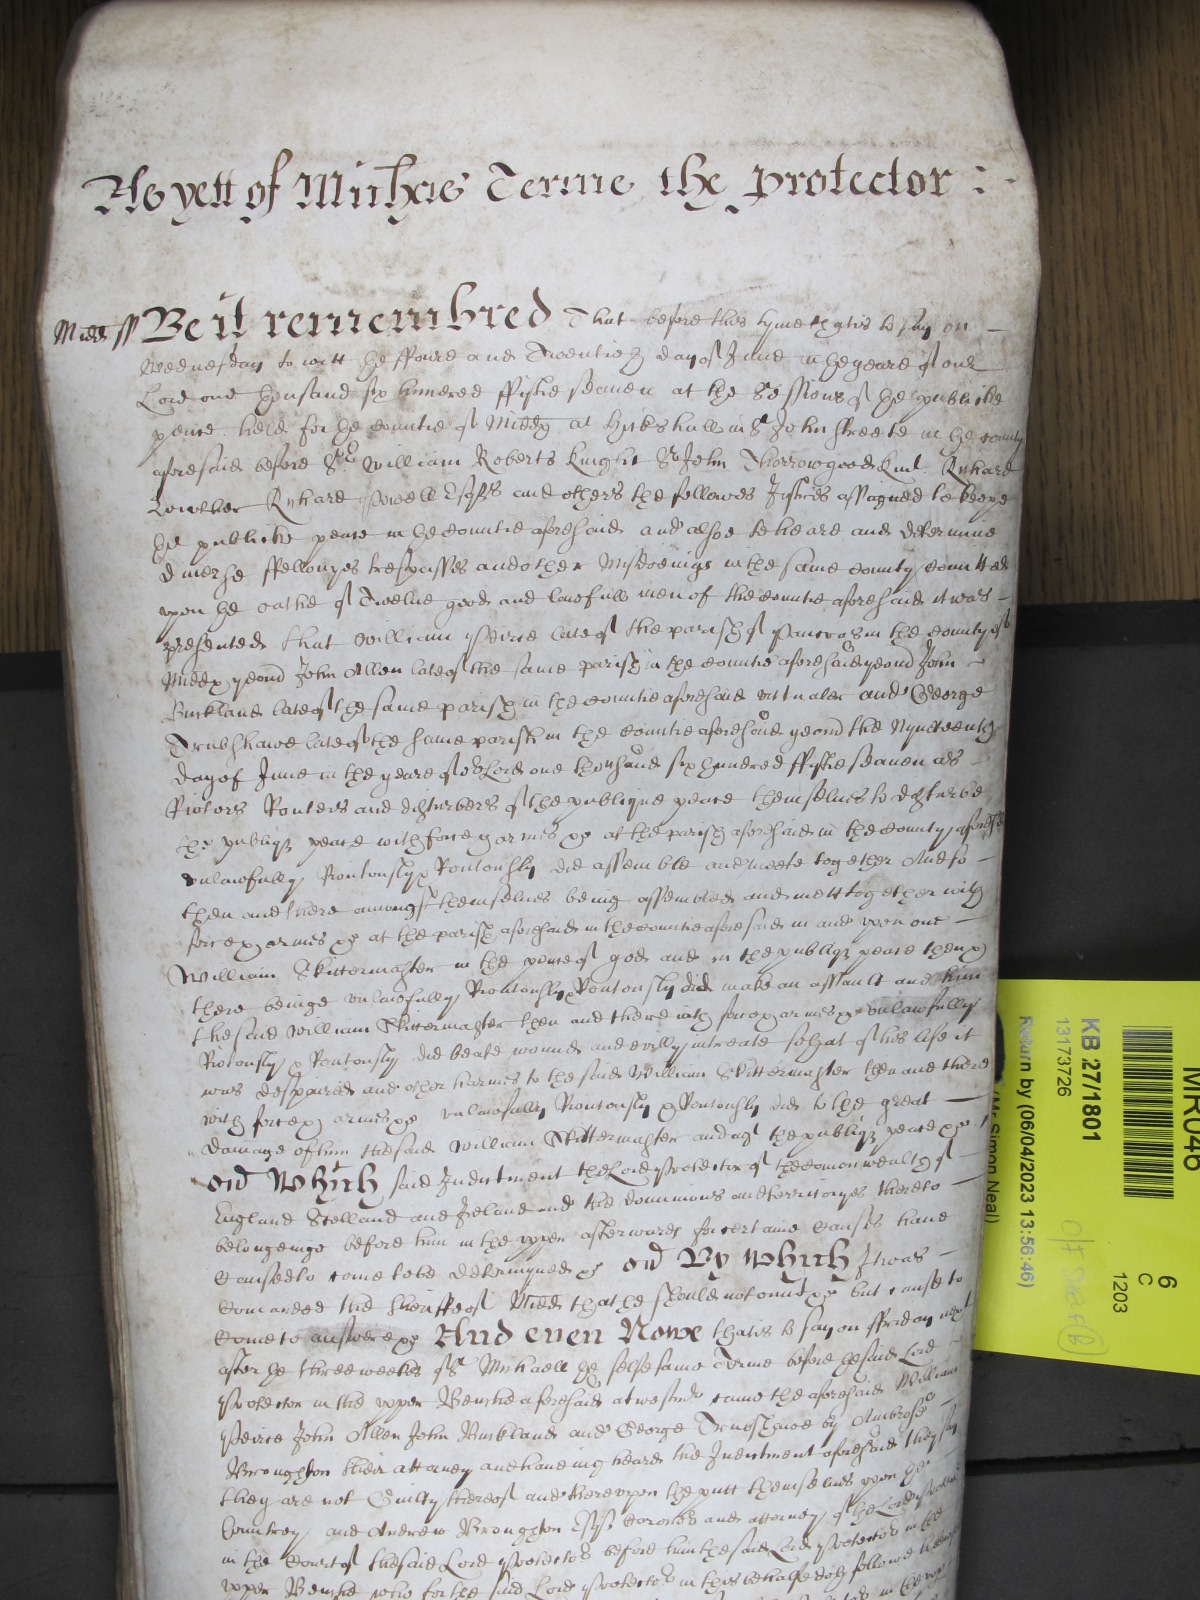 As yett of Mich'is Terme the protector :
Midd ss Be it remembred That before this tyme that is to say on
Wednesday to witt the ffoure and Twentieth day of June in the yeare of our
Lord one thousand six hundred ffiftie seaven at the Sessions of the publicke
peace held for the countie of Middx at Hickshall in St John streete in the county
aforesaid before Sr William Roberts knight Sr John Thorrowgood knt Richard
Lowther Richard Powell Esqrs and others the fellowes Justices assigned to keepe
the publicke peace in the countie aforesaid and alsoe to heare and determine
diverse ffellonyes trespasses and other Misdoeings in the same county comitted
upon the oathe of Twelve good and lawfull men of the countie aforesaid it was
presented that William Peirce late of the parish of Pancras in the county of
Middx yeom John Allen late of the same parish in the countie aforesaid yeom John
Buckland late of the same parish in the countie aforesaid victualer and George
Trubshawe late of the same parish in the countie aforesaid yeom the Nyneteenth
day of June in the yeare of our Lord one thousand six hundred ffiftie seaven as
Riotors Routers and disturbers of the publique peace themselves to disturbe
the publiq peace with force & armes &c at the parish aforesaid in the county aforesd
unlawfully Riotously & Routously did assemble and meete together And so
then and there amongst themselves being assembled and mett together with
force & armes &c at the parish aforesaid in the countie aforesaid in and upon one
William Skittermaster in the peace of god and in the publiq peace then &
there beinge unlawfully Riotously & Routously did make an assault and him
the said William Skittermaster then and there with force & armes &c unlawfully
Riotously & Routously did beate wound and evilly intreate soe that of his life it
was despaired and other harmes to the said William Skittermaster then and there
with force & armes &c unlawfully Riotously & Routously did to the great
damage of him the said William Skittermaster and agt the publiq peace &c /
which said Indictment the Lord Protector of the Comonwealth of
England Scotland and Ireland and the dominions and territoryes thereto
belongeinge before him in the upper afterwards for certaine Causes hath
Caused to come to be determyned &c By which It was
Comanded the Sheriffe of Midd that he should not omitt &c but cause to
Come to answere &c And even Nowe that is to say on ffryday next
after the three weekes of St Michaell the selfe same Terme before the said Lord
Protector in the upper Benche aforesaid at Westmr came the aforesaid William
Peirce John Allen John Buckland and George Trubshawe by Ambrose
Broughton their attorney and haveing heard the Indictment aforesaid they say
they are not Guilty thereof and thereupon the putt themselves upon the
Countrey and Andrew Broughton Esqr Coronor and attorney of the Lord Protector
in the Court of the said Lord Protector before him the said Lord Protector in the
upper Benche who for the said Lord Protector in this behalfe doth followe
MR046
KB 27/1801
13173726
Return by (06/04/2023 13:56:46)
(Mr Simon Neal)
6
C
1203